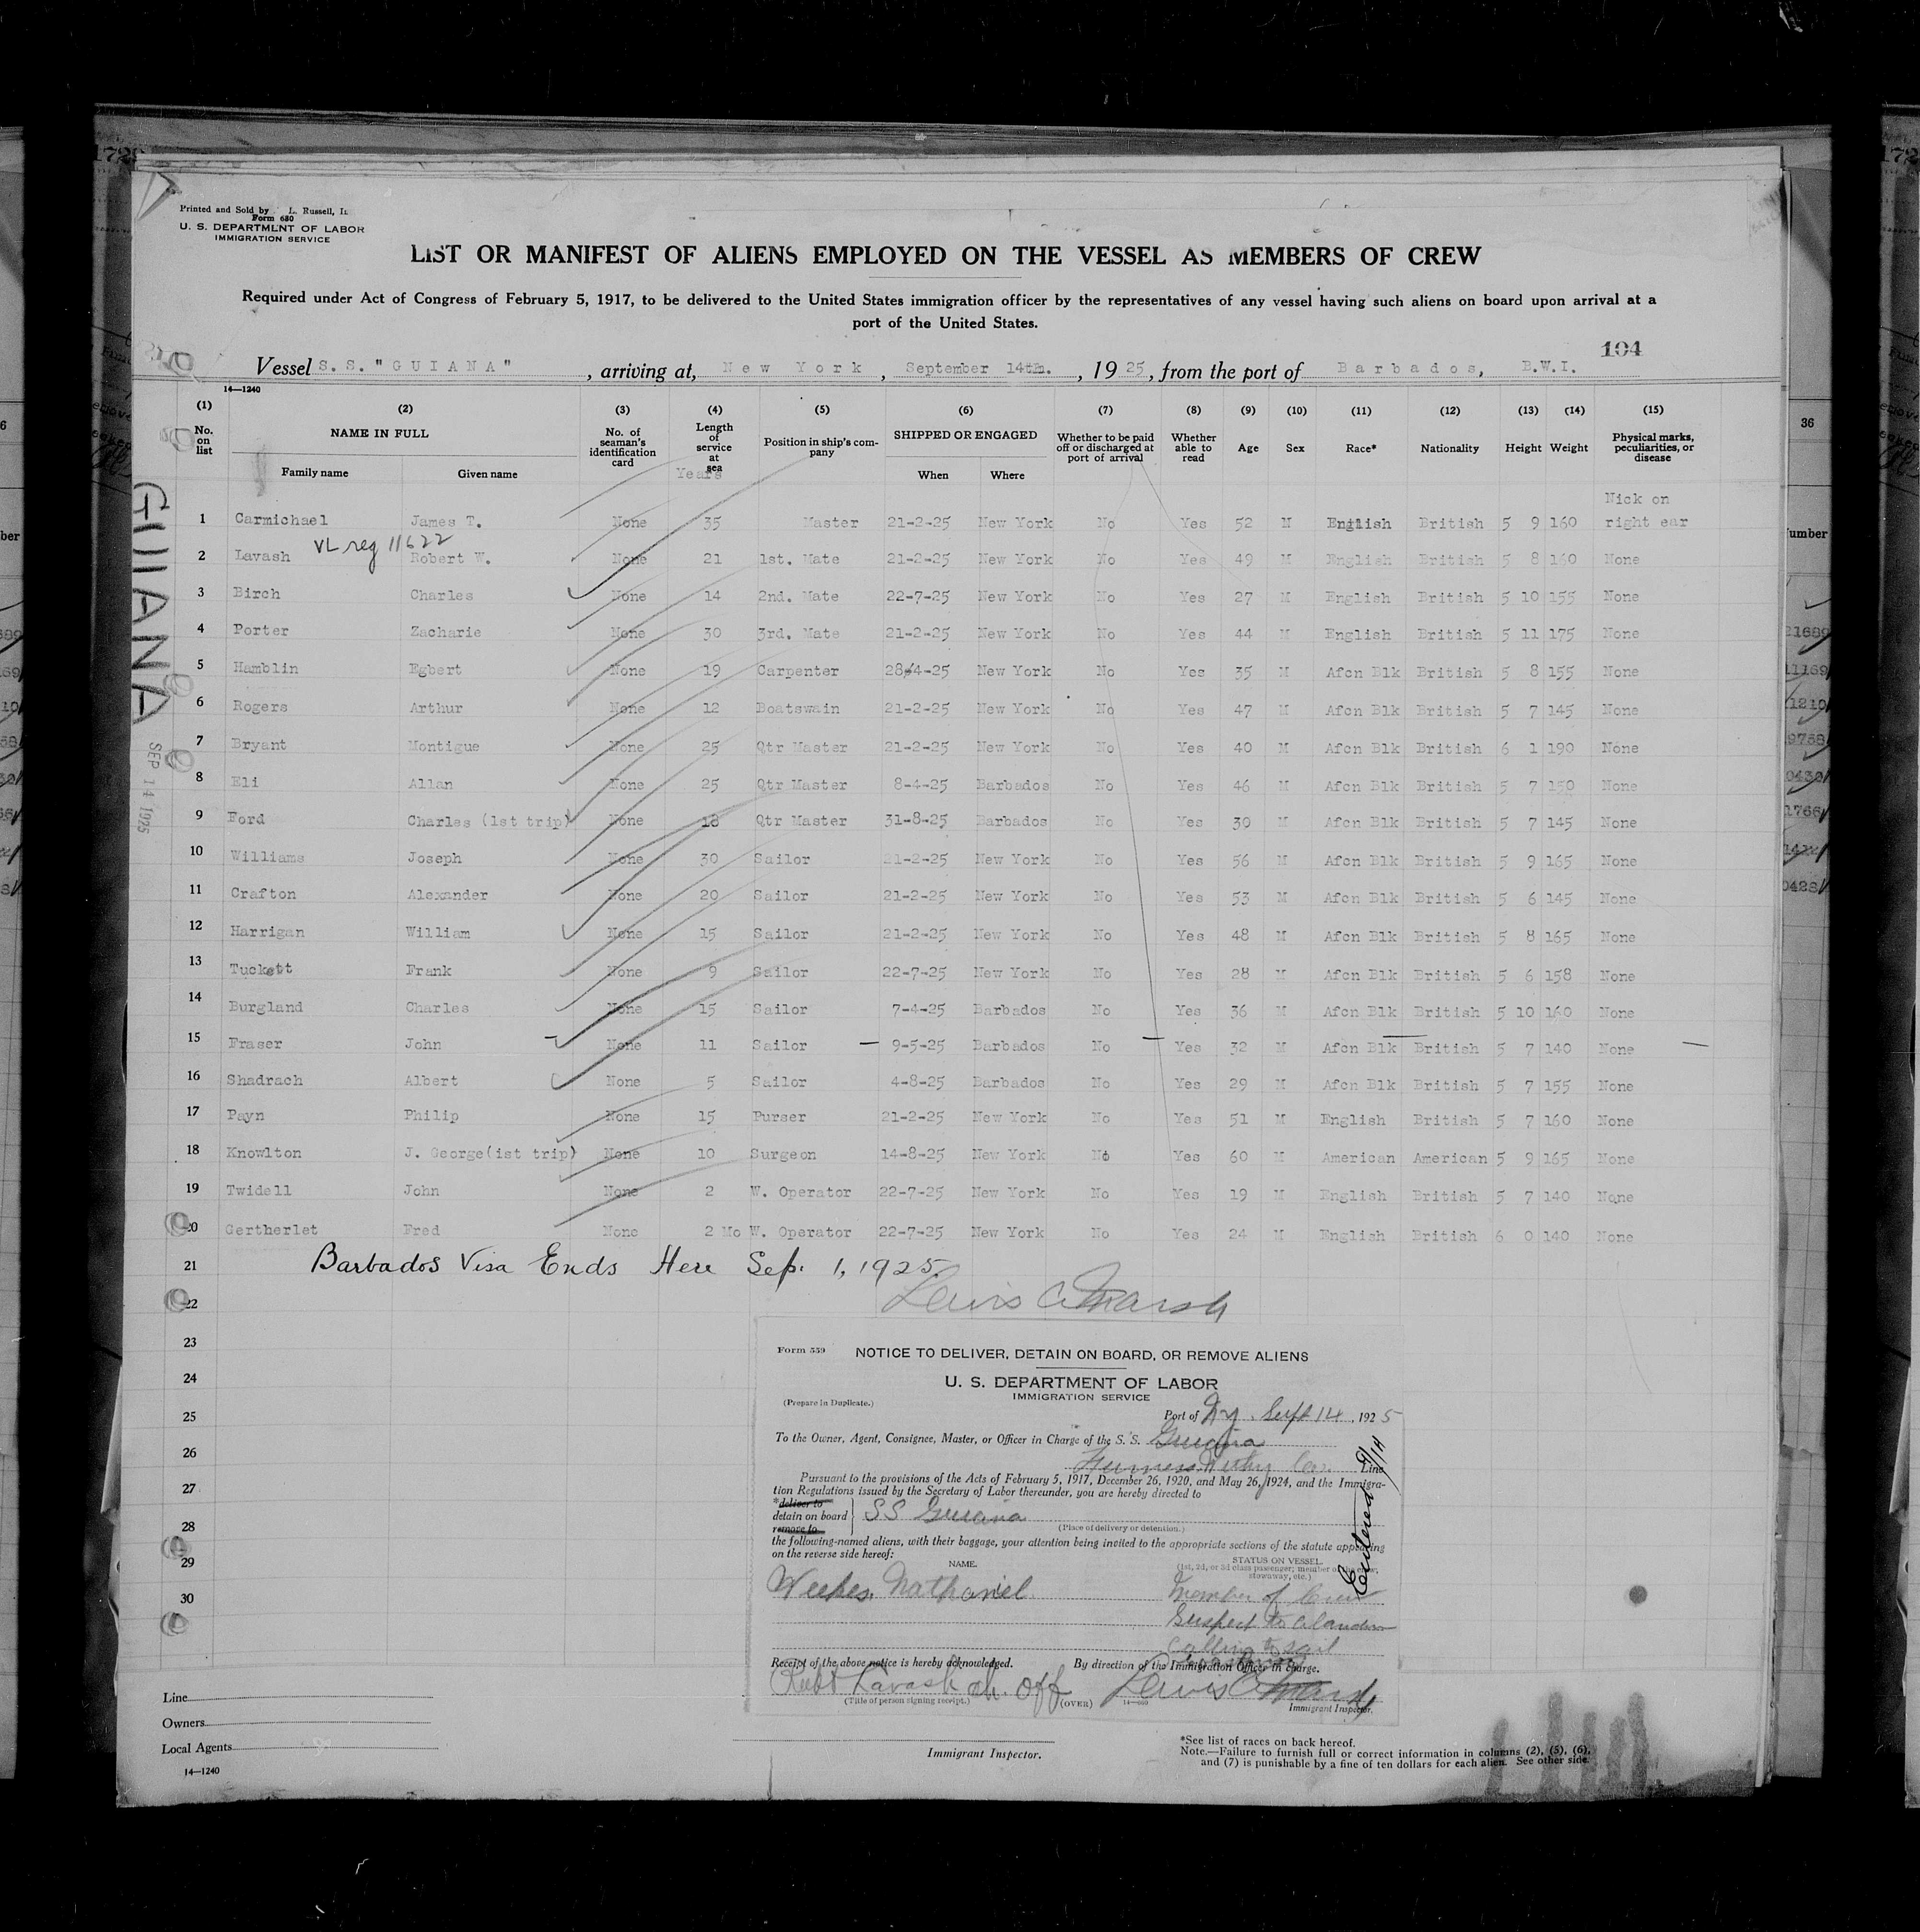 Printed and Sold by L. Russell, I
Form 680
U. S. DEPARTMENT OF LABOR
IMMIGRATION SERVICE
LIST OR MANIFEST OF ALIENS EMPLOYED ON THE VESSEL AS MEMBERS OF CREW
Required under Act of Congress of February 5, 1917, to be delivered to the United States immigration officer by the representatives of any vessel having such aliens on board upon arrival at a
port of the United States.
104
Vessel S. S. "GUIANA", arriving at, New York, September 14th., 1925, from the port of Barbados, B.W.I.
14—1240
(1) (2) (3) (4) (5) (6) (7) (8) (9) (10) (11) (12) (13) (14) (15)
No. on list NAME IN FULL No. of seaman's identification card Length of service at sea Position in ship's company SHIPPED OR ENGAGED Whether to be paid off or discharged at port of arrival Whether able to read Age Sex Race* Nationality Height Weight Physical marks, peculiarities, or disease
Family name Given name Years When Where
1 Carmichael James T. None 35 Master 21-2-25 New York No Yes 52 M English British 5 9 160 Nick on right ear
VL reg 11622
2 Lavash Robert W. None 21 1st. Mate 21-2-25 New York No Yes 49 M English British 5 8 160 None
3 Birch Charles None 14 2nd. Mate 22-7-25 New York No Yes 27 M English British 5 10 155 None
4 Porter Zacharie None 30 3rd. Mate 21-2-25 New York No Yes 44 M English British 5 11 175 None
5 Hamblin Egbert None 19 Carpenter 28-4-25 New York No Yes 35 M Afcn Blk British 5 8 155 None
6 Rogers Arthur None 12 Boatswain 21-2-25 New York No Yes 47 M Afcn Blk British 5 7 145 None
7 Bryant Montigue None 25 Qtr Master 21-2-25 New York No Yes 40 M Afcn Blk British 6 1 190 None
8 Eli Allan None 25 Qtr Master 8-4-25 Barbados No Yes 46 M Afcn Blk British 5 7 150 None
9 Ford Charles (1st trip) None 18 Qtr Master 31-8-25 Barbados No Yes 30 M Afcn Blk British 5 7 145 None
10 Williams Joseph None 30 Sailor 21-2-25 New York No Yes 56 M Afcn Blk British 5 9 165 None
11 Crafton Alexander None 20 Sailor 21-2-25 New York No Yes 53 M Afcn Blk British 5 6 145 None
12 Harrigan William None 15 Sailor 21-2-25 New York No Yes 48 M Afcn Blk British 5 8 165 None
13 Tuckett Frank None 9 Sailor 22-7-25 New York No Yes 28 M Afcn Blk British 5 6 158 None
14 Burgland Charles None 15 Sailor 7-4-25 Barbados No Yes 36 M Afcn Blk British 5 10 160 None
15 Fraser John None 11 Sailor 9-5-25 Barbados No Yes 32 M Afcn Blk British 5 7 140 None
16 Shadrach Albert None 5 Sailor 4-8-25 Barbados No Yes 29 M Afcn Blk British 5 7 155 None
17 Payn Philip None 15 Purser 21-2-25 New York No Yes 51 M English British 5 7 160 None
18 Knowlton J. George(ist trip) None 10 Surgeon 14-8-25 New York No Yes 60 M American American 5 9 165 None
19 Twidell John None 2 W. Operator 22-7-25 New York No Yes 19 M English British 5 7 140 None
20 Gertherlet Fred None 2 Mo W. Operator 22-7-25 New York No Yes 24 M English British 6 0 140 None
21 Barbados Visa Ends Here Sep. 1, 1925.
22 Lewis C. Marsh
23
24
25
26
27
28
29
30
GUIANA
SEP 14 1925
Form 559 NOTICE TO DELIVER, DETAIN ON BOARD, OR REMOVE ALIENS
U. S. DEPARTMENT OF LABOR
IMMIGRATION SERVICE
(Prepare in Duplicate.)
Port of NY. Sept 14, 1925
To the Owner, Agent, Consignee, Master, or Officer in Charge of the S. S. Guiana
Furness Withy Line
Pursuant to the provisions of the Acts of February 5, 1917, December 26, 1920, and May 26, 1924, and the Immigra-
tion Regulations issued by the Secretary of Labor thereunder, you are hereby directed to
*deliver to
detain on board SS Guiana
remove to (Place of delivery or detention.)
the following-named aliens, with their baggage, your attention being invited to the appropriate sections of the statute appearing
on the reverse side hereof:
NAME. STATUS ON VESSEL.
(1st, 2d, or 3d class passenger; member of the crew; stowaway, etc.)
Weekes, Nathaniel Member of Crew
Suspect to
to sail
Entered 9/14
Receipt of the above notice is hereby acknowledged. By direction of the Immigration Officer in Charge.
Robt Lavash ch. Off Lewis C. Marsh
(Title of person signing receipt.) (OVER) 14—660 Immigrant Inspector.
Line
Owners
Local Agents
14—1240
Immigrant Inspector.
*See list of races on back hereof.
Note.—Failure to furnish full or correct information in columns (2), (5), (6),
and (7) is punishable by a fine of ten dollars for each alien. See other side.
36
umber
21689
11169